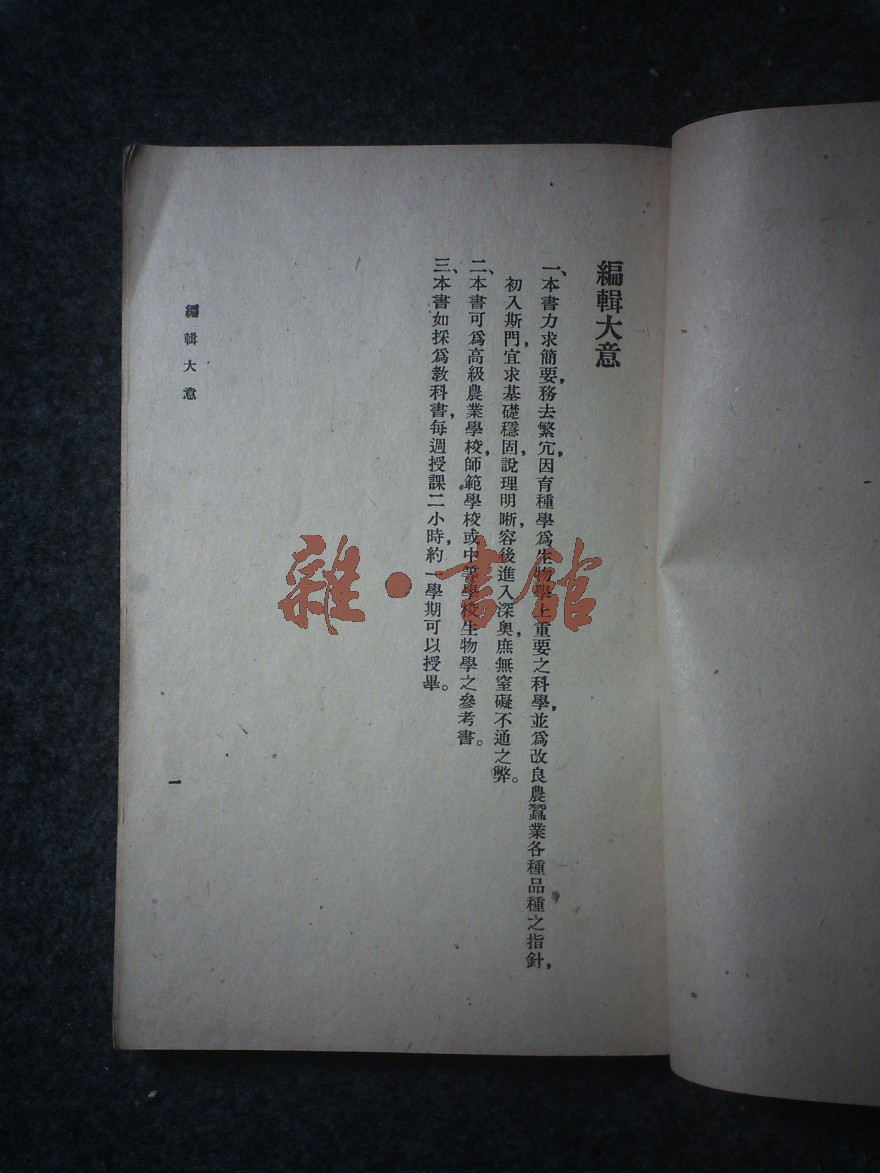 編輯大意
一、本書力求簡要，務去繁冗，因育種學爲生物學上重要之科學，並爲改良農蠶業各種品種之指針，
初入斯門，宜求基礎穩固，說理明晰，容後進入深奧，庶無窒礙不通之弊。
二、本書可爲高級農業學校，師範學校或中等學校生物學之參考書。
三、本書如採爲教科書，每週授課二小時，約一學期可以授畢。
編輯大意
一
雜·書館